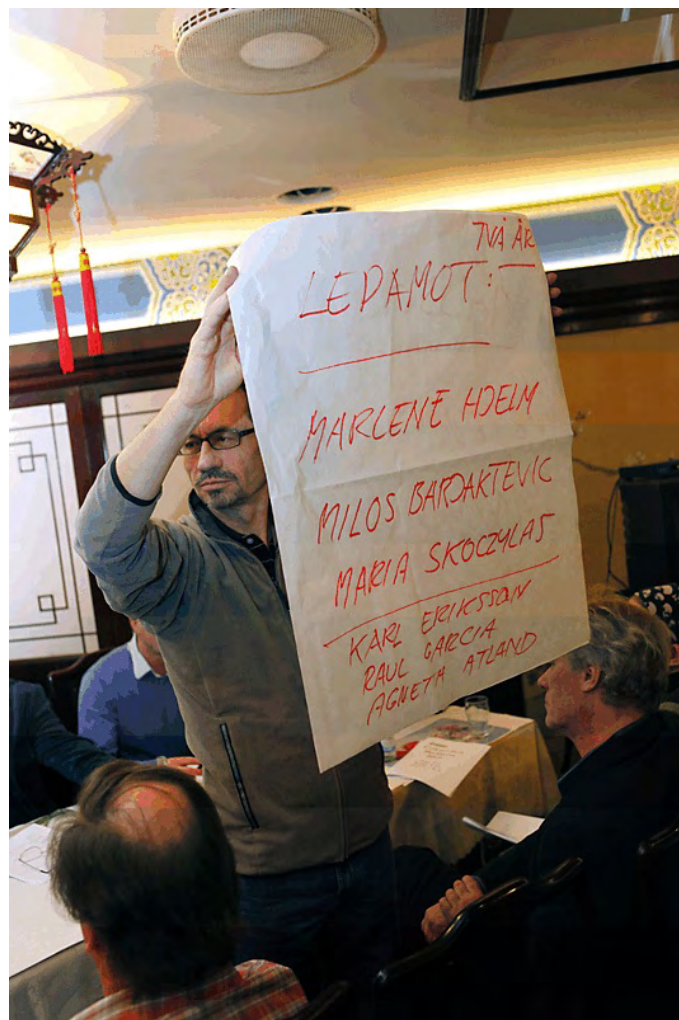 TVÅ ÅR
LEDAMOT:
MARLENE HJELM
MILOS BARJAKTEVIC
MARIA SKOCZYLAS
KARL ERIKSSON
RAUL GARCIA
AGNETA ATLAND